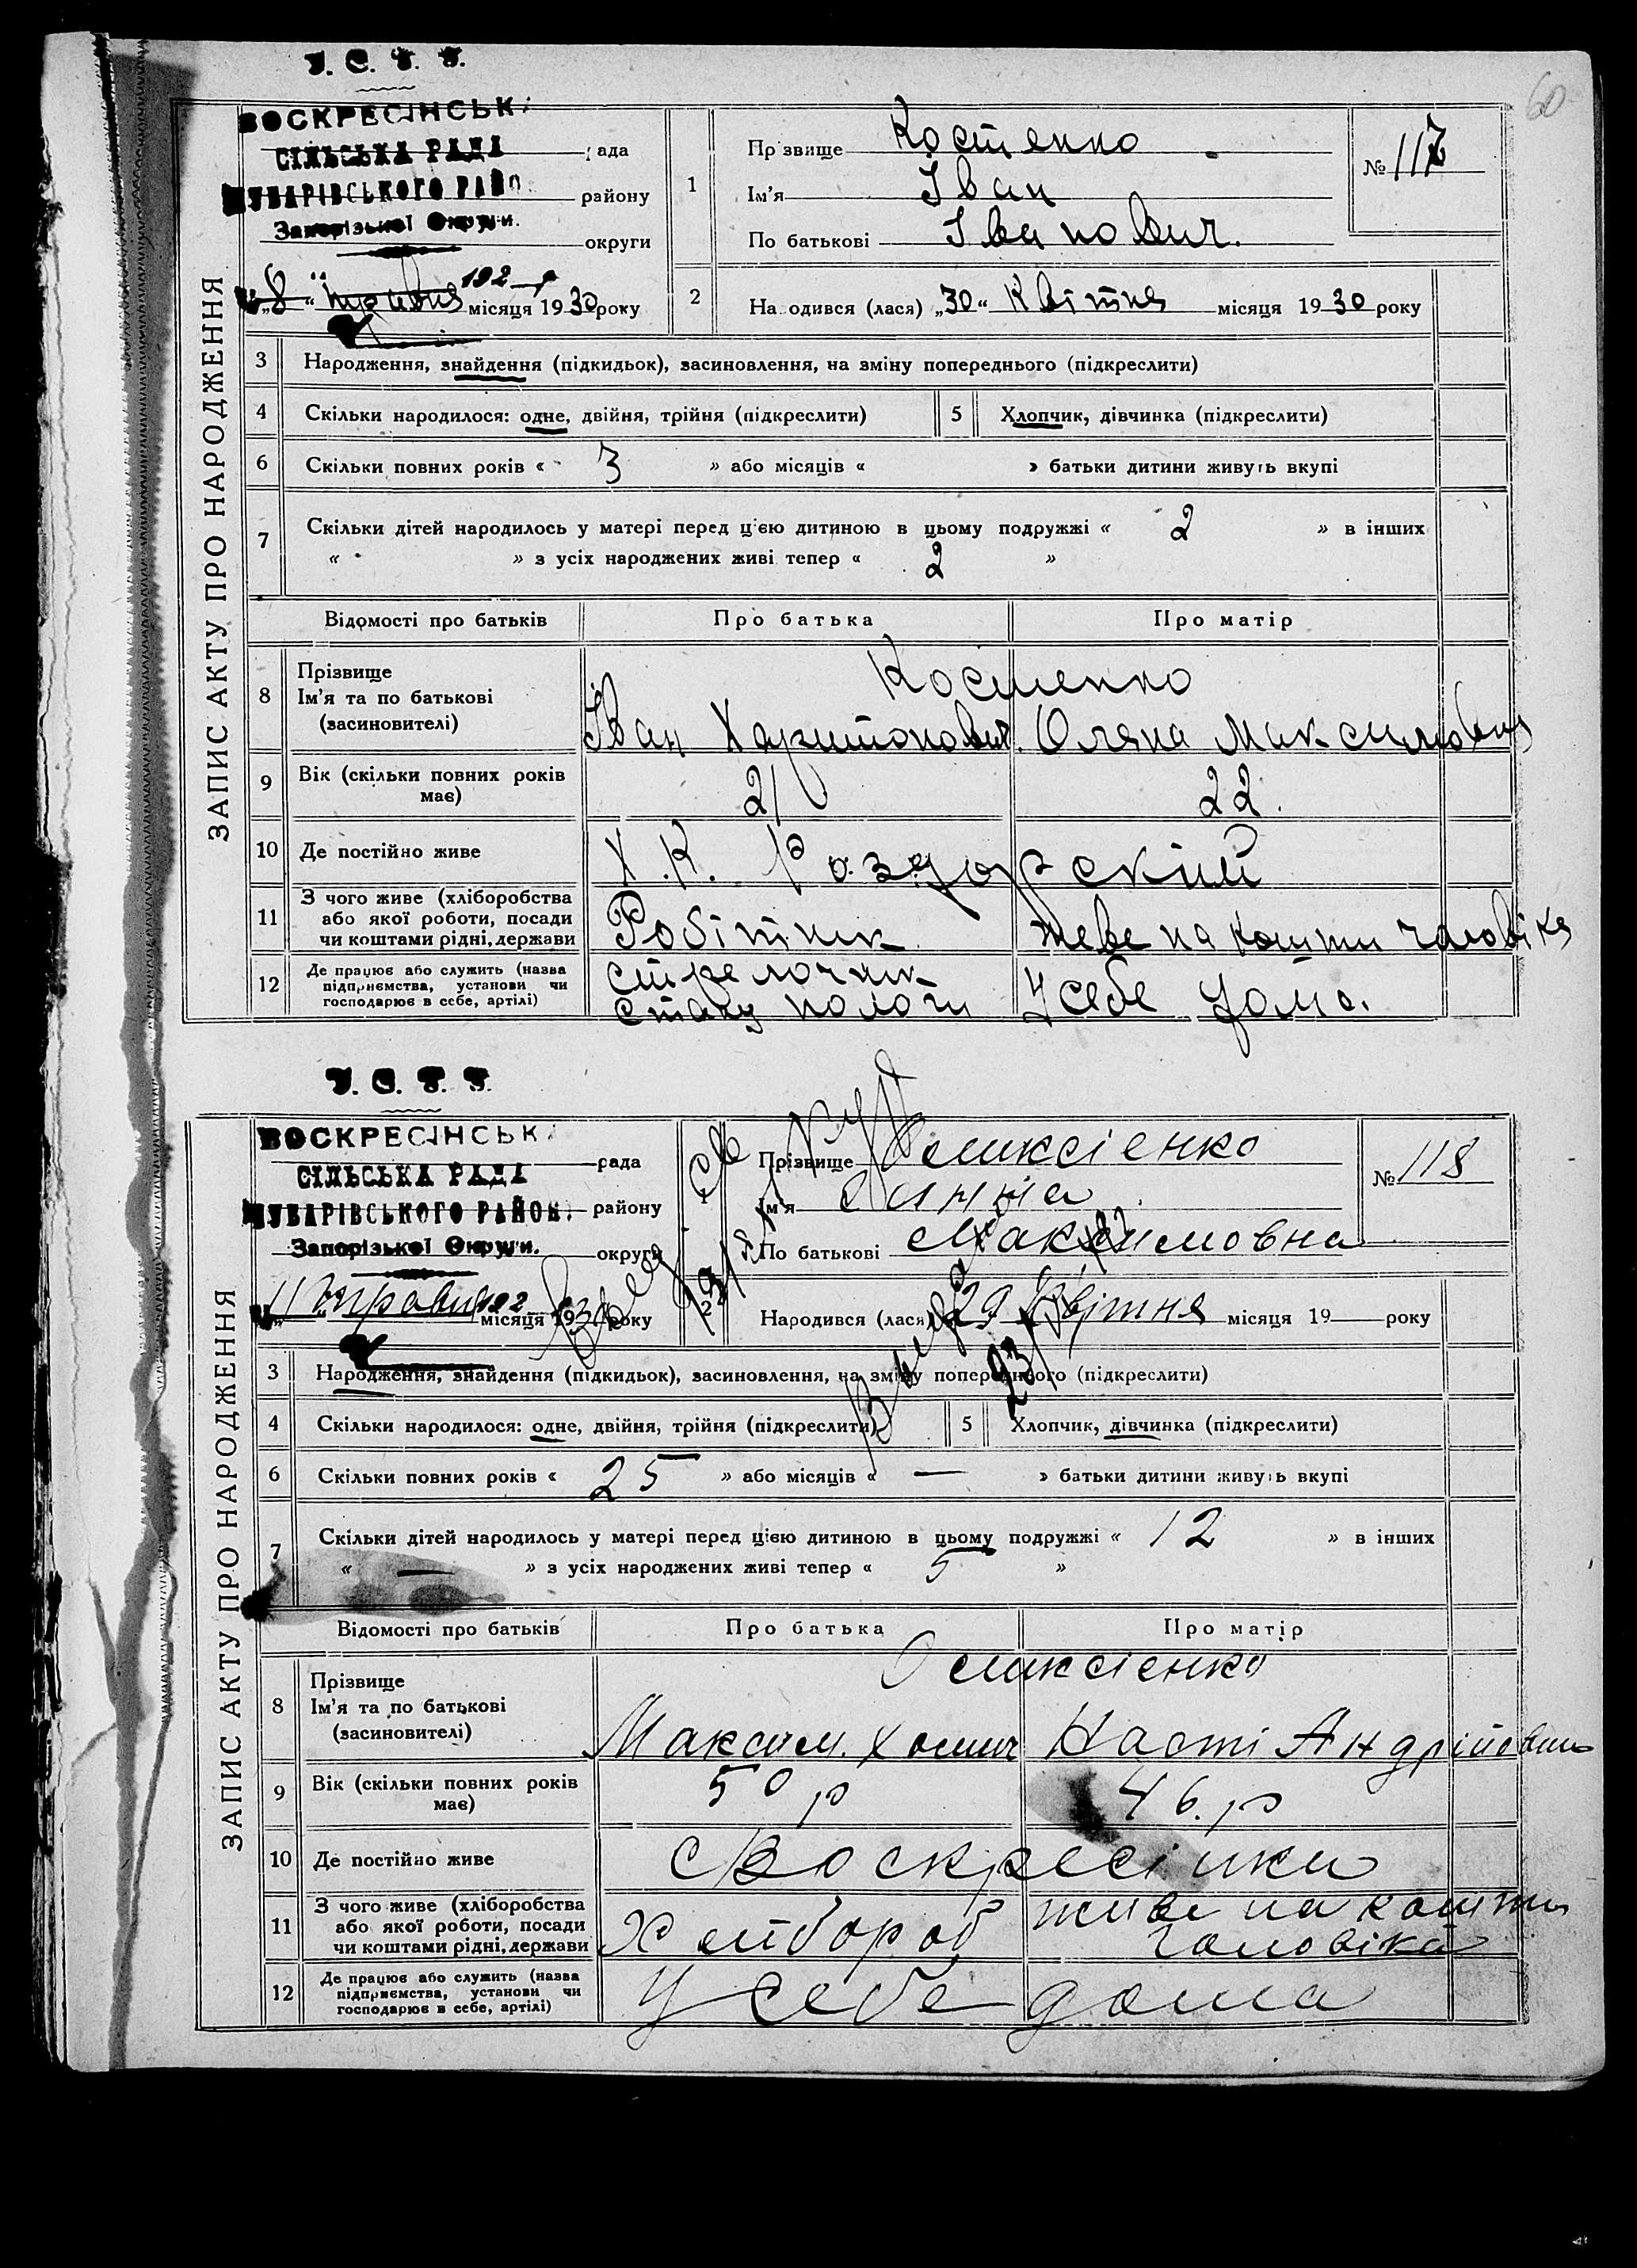 60
У. С. Р. Р.
ВОСКРЕСІНСЬК
СІЛЬСЬКА РАДА рада
ЧУБАРІВСЬКОГО РАЙО району
Запорізької Округи. округи
192 р
„8“ травня місяця 1930 року
ЗАПИС АКТУ ПРО НАРОДЖЕННЯ
1
Прізвище Костенко
Ім'я Іван
По батькові Іванович.
№ 117
2
Народився (лася) „30“ Квітня місяця 1930 року
3 Народження, знайдення (підкидьок), засиновлення, на зміну попереднього (підкреслити)
4 Скільки народилося: одне, двійня, трійня (підкреслити) 5 Хлопчик, дівчинка (підкреслити)
6 Скільки повних років « 3 » або місяців « » батьки дитини живуть вкупі
7 Скільки дітей народилось у матері перед цією дитиною в цьому подружжі « 2 » в інших
« » з усіх народжених живі тепер « 2 »
Відомості про батьків Про батька Про матір
8 Прізвище Ім'я та по батькові (засиновителі)
Костенко
Іван Харитонович. Оляна Максимовна
9 Вік (скільки повних років має) 21 22.
10 Де постійно живе Х.К. Роздорский
11 З чого живе (хліборобства або якої роботи, посади чи коштами рідні, держави Робітник живе на кошти чаловіка
12 Де працює або служить (назва підприємства, установи чи господарює в себе, артілі) стрелочник Станц пологи У себе дома.
У. С. Р. Р.
ВОСКРЕСІНСЬК
СІЛЬСЬКА РАДА рада
ЧУБАРІВСЬКОГО РАЙОН. району
Запорізької Округи. округи
„11“ травня 192 місяця 1930 року
ЗАПИС АКТУ ПРО НАРОДЖЕННЯ
Прізвище Оликсієнко
Ім'я Ганна
По батькові Максимовна
№ 118
2
Народився (лася) 29 Квітня місяця 19 року
3 Народження, знайдення (підкидьок), засиновлення, на зміну попереднього (підкреслити)
4 Скільки народилося: одне, двійня, трійня (підкреслити) 5 Хлопчик, дівчинка (підкреслити)
6 Скільки повних років « 25 » або місяців « — » батьки дитини живуть вкупі
7 Скільки дітей народилось у матері перед цією дитиною в цьому подружжі « 12 » в інших
« — » з усіх народжених живі тепер « 5 »
Відомості про батьків Про батька Про матір
8 Прізвище Ім'я та по батькові (засиновителі)
Оликсієнко
Максим. Хомич Насті Андріївни
9 Вік (скільки повних років має) 50 р 46. р
10 Де постійно живе с Воскресінки
11 З чого живе (хліборобства або якої роботи, посади чи коштами рідні, держави Хлібороб живе на кошти чаловіка
12 Де працює або служить (назва підприємства, установи чи господарює в себе, артілі) У себе дома